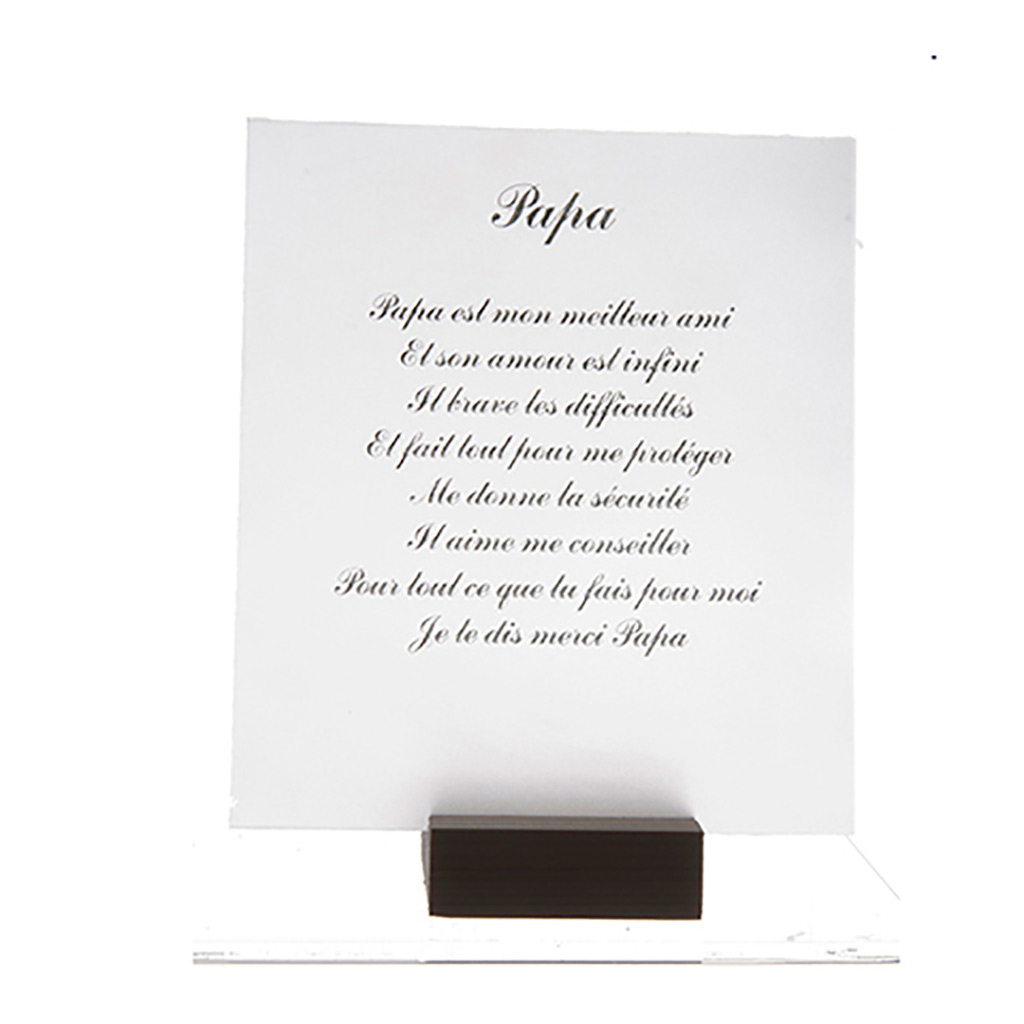 Papa
Papa est mon meilleur ami
Et son amour est infini
Il brave les difficultés
Et fait tout pour me protéger
Me donne la sécurité
Il aime me conseiller
Pour tout ce que tu fais pour moi
Je te dis merci Papa